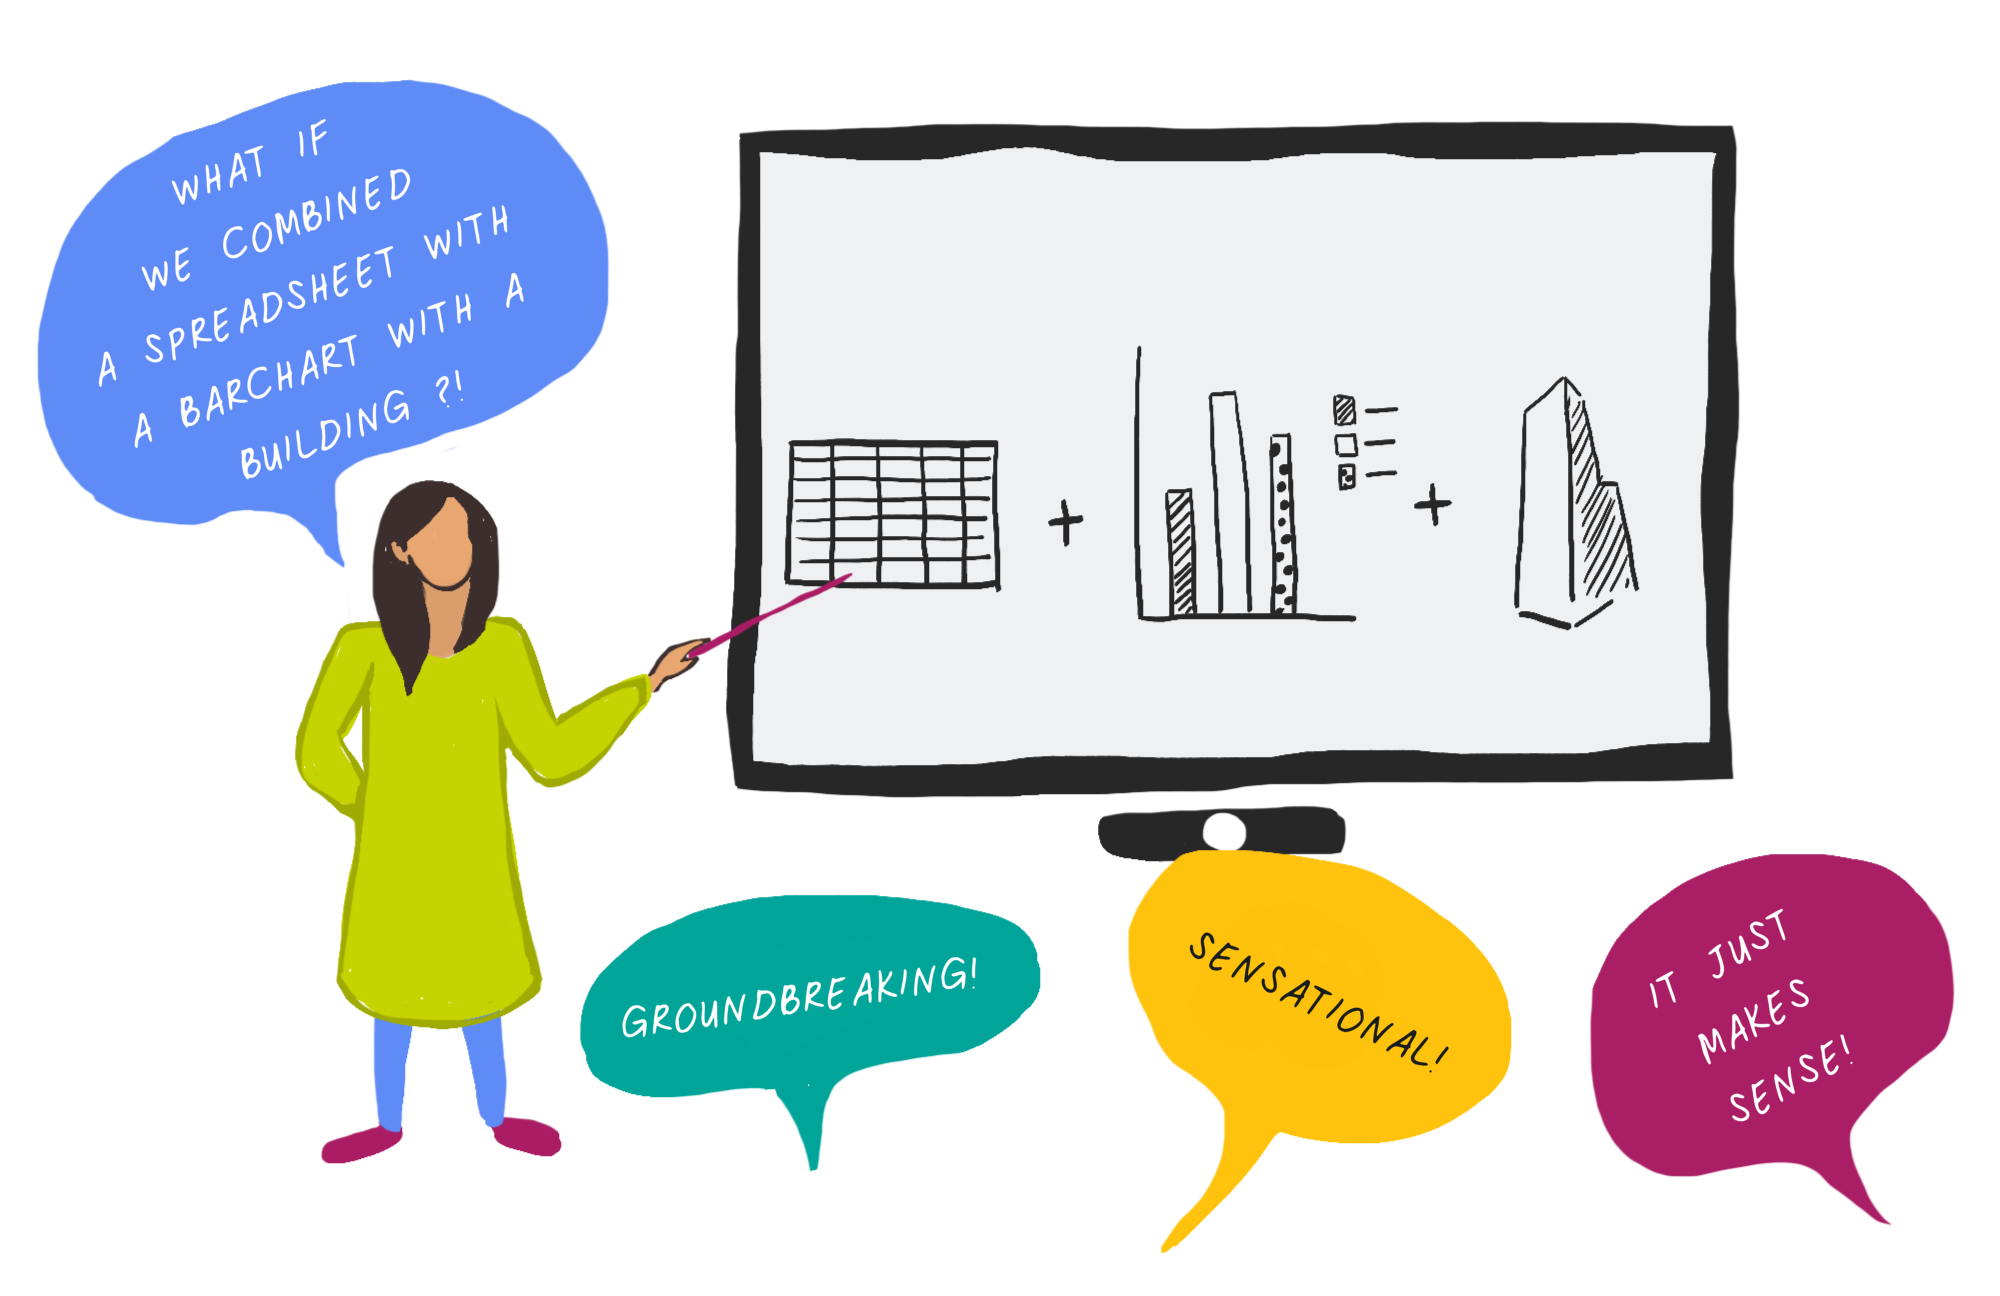 WHAT IF
WE COMBINED
A SPREADSHEET WITH
A BARCHART WITH A
BUILDING ?!
+
+
GROUNDBREAKING!
SENSATIONAL!
IT JUST
MAKES
SENSE!